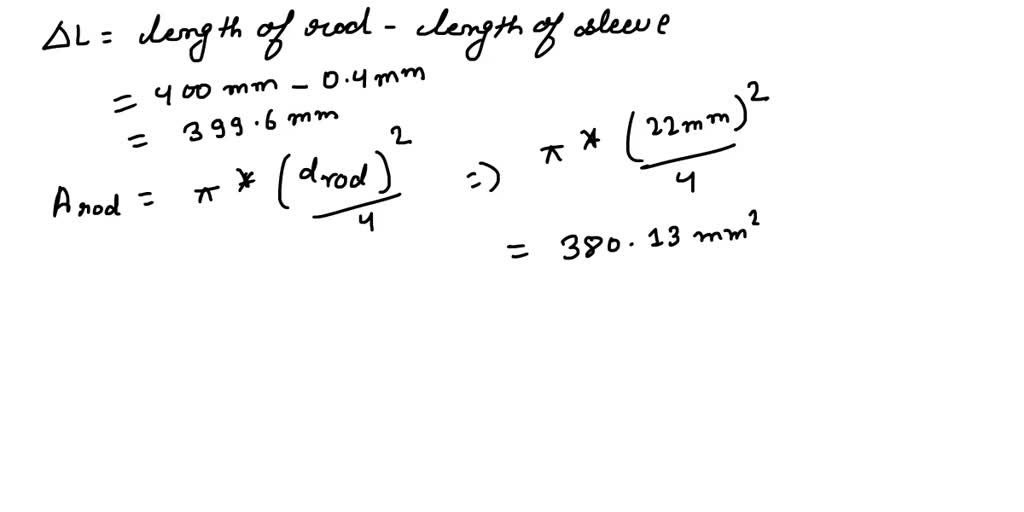 ΔL = length of rod - length of sleeve
= 400 mm - 0.4 mm
= 399.6 mm
A rod = π * (d rod)² / 4 => π * (22mm)² / 4
= 380.13 mm²